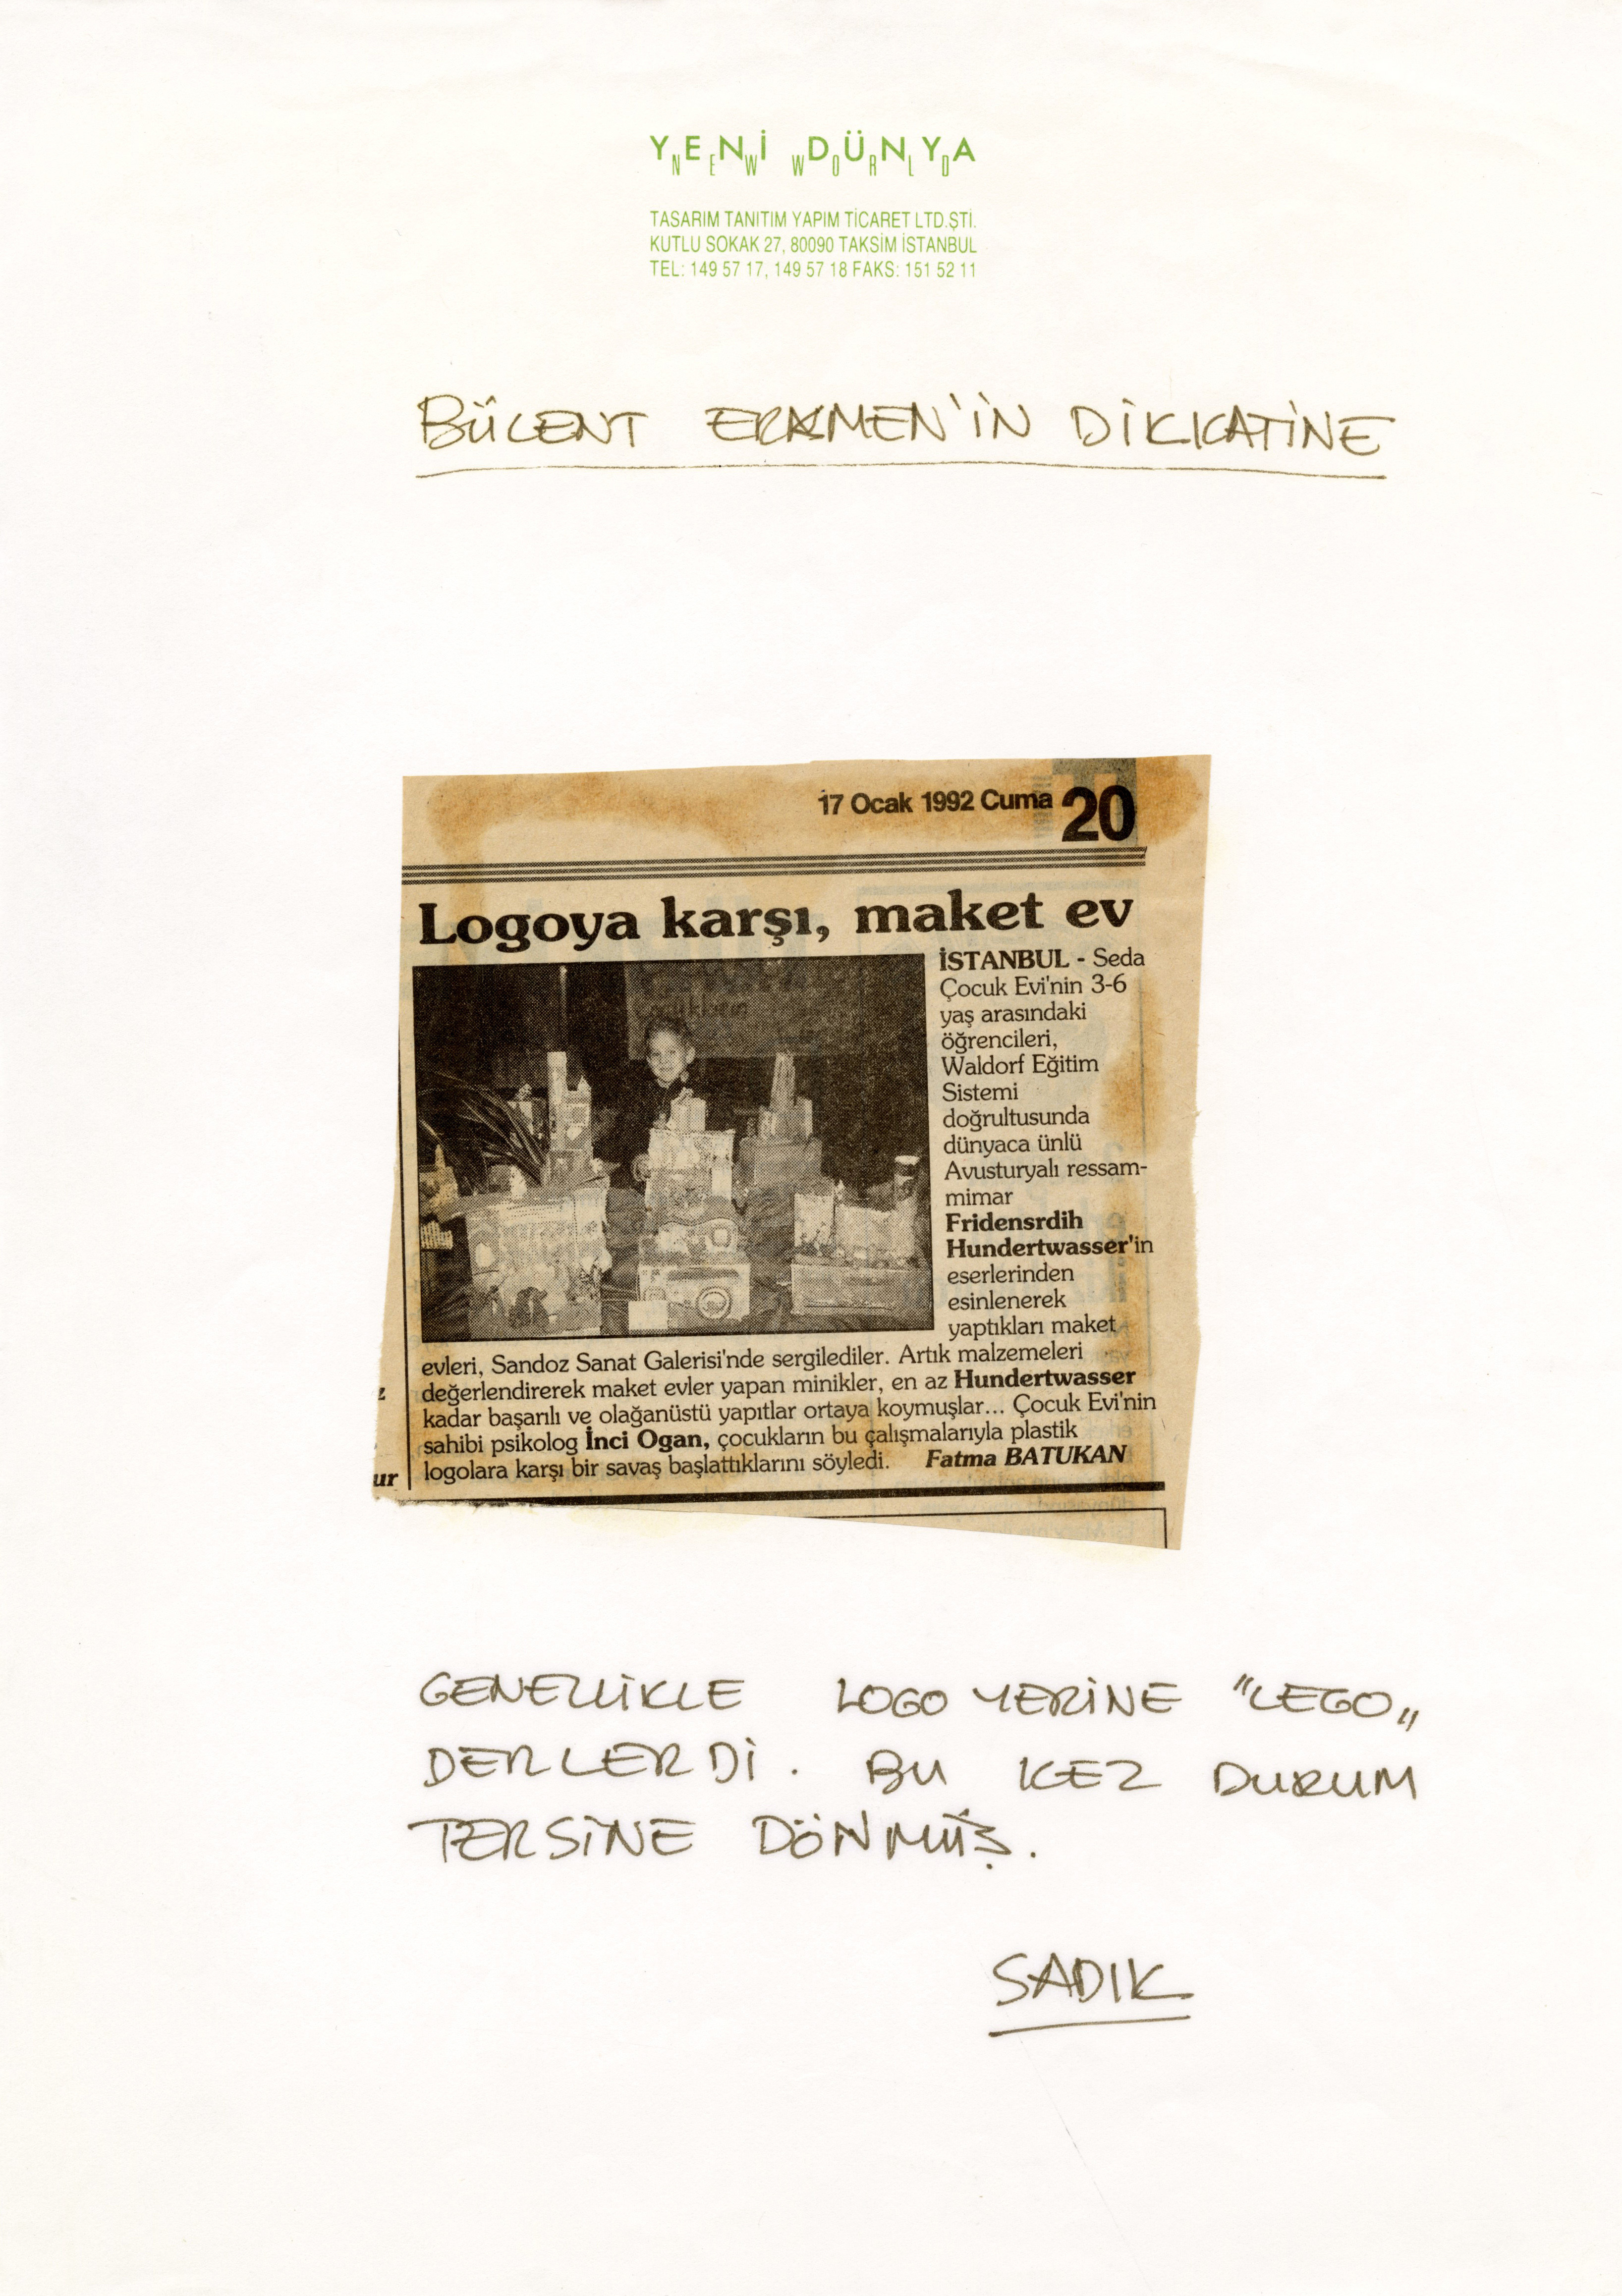 YENİ DÜNYA
NEW WORLD
TASARIM TANITIM YAPIM TİCARET LTD.ŞTİ.
KUTLU SOKAK 27, 80090 TAKSİM İSTANBUL
TEL: 149 57 17, 149 57 18 FAKS: 151 52 11
BÜLENT ERKMEN'İN DİKKATİNE
17 Ocak 1992 Cuma 20
Logoya karşı, maket ev
İSTANBUL - Seda
Çocuk Evi'nin 3-6
yaş arasındaki
öğrencileri,
Waldorf Eğitim
Sistemi
doğrultusunda
dünyaca ünlü
Avusturyalı ressam-
mimar
Fridensrdih
Hundertwasser'in
eserlerinden
esinlenerek
yaptıkları maket
evleri, Sandoz Sanat Galerisi'nde sergilediler. Artık malzemeleri
değerlendirerek maket evler yapan minikler, en az Hundertwasser
kadar başarılı ve olağanüstü yapıtlar ortaya koymuşlar... Çocuk Evi'nin
sahibi psikolog İnci Ogan, çocukların bu çalışmalarıyla plastik
logolara karşı bir savaş başlattıklarını söyledi. Fatma BATUKAN
ur
GENELLİKLE LOGO YERİNE "LEGO„
DERLERDİ. BU KEZ DURUM
TERSİNE DÖNMÜŞ.
SADIK